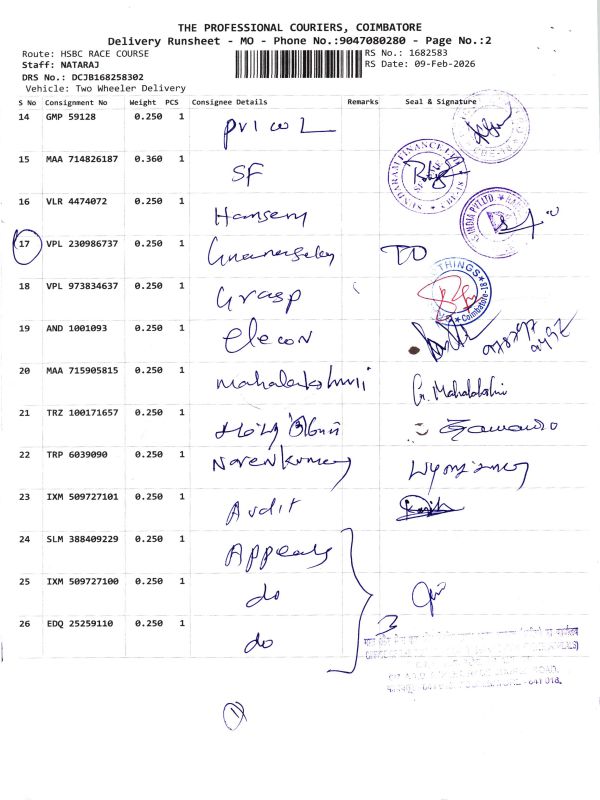 THE PROFESSIONAL COURIERS, COIMBATORE
Delivery Runsheet - MO - Phone No.:9047080280 - Page No.:2
Route: HSBC RACE COURSE
RS No.: 1682583
Staff: NATARAJ
RS Date: 09-Feb-2026
DRS No.: DCJB168258302
Vehicle: Two Wheeler Delivery
S No Consignment No Weight PCS Consignee Details Remarks Seal & Signature
14 GMP 59128 0.250 1 pricol
15 MAA 714826187 0.360 1 SF
SUNDARAM FINANCE
16 VLR 4474072 0.250 1 Hansen
INDIA PVT LTD
17 VPL 230986737 0.250 1
18 VPL 973834637 0.250 1 Grasp
THINGS
Coimbatore-18
19 AND 1001093 0.250 1 elecon
20 MAA 715905815 0.250 1 mahalakshmi G. Mahalakshmi
21 TRZ 100171657 0.250 1
22 TRP 6039090 0.250 1 Narenkumar
23 IXM 509727101 0.250 1 Audit
24 SLM 388409229 0.250 1 Appeals
25 IXM 509727100 0.250 1 do
26 EDQ 25259110 0.250 1 do
3